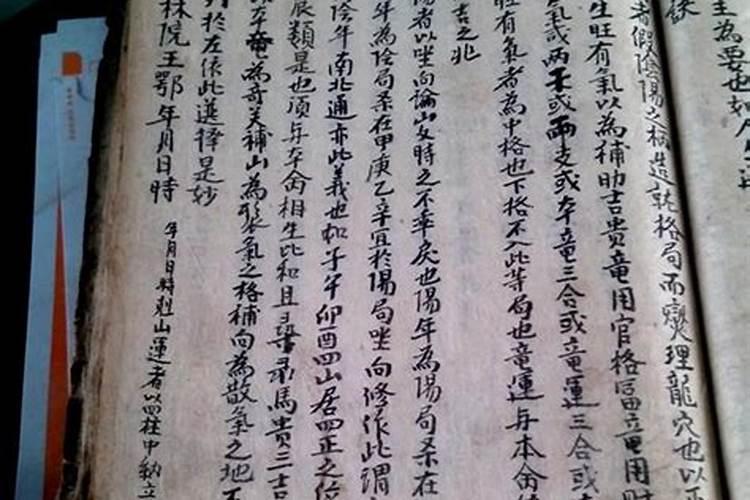 主為要也如人生
訣
者假陰陽之柄造就格局而燮理龍穴也以
生旺有氣以為補助吉貴竜用官格冨竜用財
氣或两干或兩支或本竜三合或竜運三合或
旺有氣者為中格也下格不入此等局也竜運与本命
吉之兆
陽者以坐向論山女時之不乖戾也陽年為陽局系在
年為陰局系在甲庚乙辛宜於陽局坐向修作此謂
陰年南北通亦此義也如子午卯酉四山居四正之位
辰類是也須与本命相生比和且尋禄馬貴三吉
本竜為奇美補山為聚氣之格補向為散氣之地
於左依此選擇是妙
林院王鄂年月日時
年月日時剋山運者以四柱中納